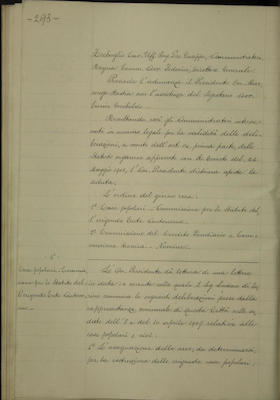 -293-
Amministratori
Magni Comm. Avv. Federico, Direttore Generale.
Presiede l'adunanza il Presidente On. Mar-
chese con l'assistenza del Segretario Avv.
Risultando così gli Amministratori interve-
nuti in numero legale per la validità delle deli-
berazioni, a mente dell'art. 14, prima parte, dello
Statuto organico approvato con R. Decreto del 24
Maggio 1903, l'On. Presidente dichiara aperta la
seduta.
L'ordine del giorno reca:
1° Case popolari - Commissione per lo Statuto del-
l'erigendo Ente Autonomo.
2° Commissione del Credito Fondiario e Com-
missione tecnica - Nomine.
Case popolari. Commis-
sione per lo Statuto del-
l'erigendo Ente Autono-
mo.
L'On. Presidente dà lettura di una lettera
in data con la quale l'Ill. Sig. Sindaco di
comunica le seguenti deliberazioni prese dalla
rappresentanza comunale di questa Città nelle se-
dute dell'8 e del 10 aprile 1907 relative alle
case popolari e cioè:
1° L'assegnazione delle aree, da determinarsi,
per la costruzione delle erigende case popolari.